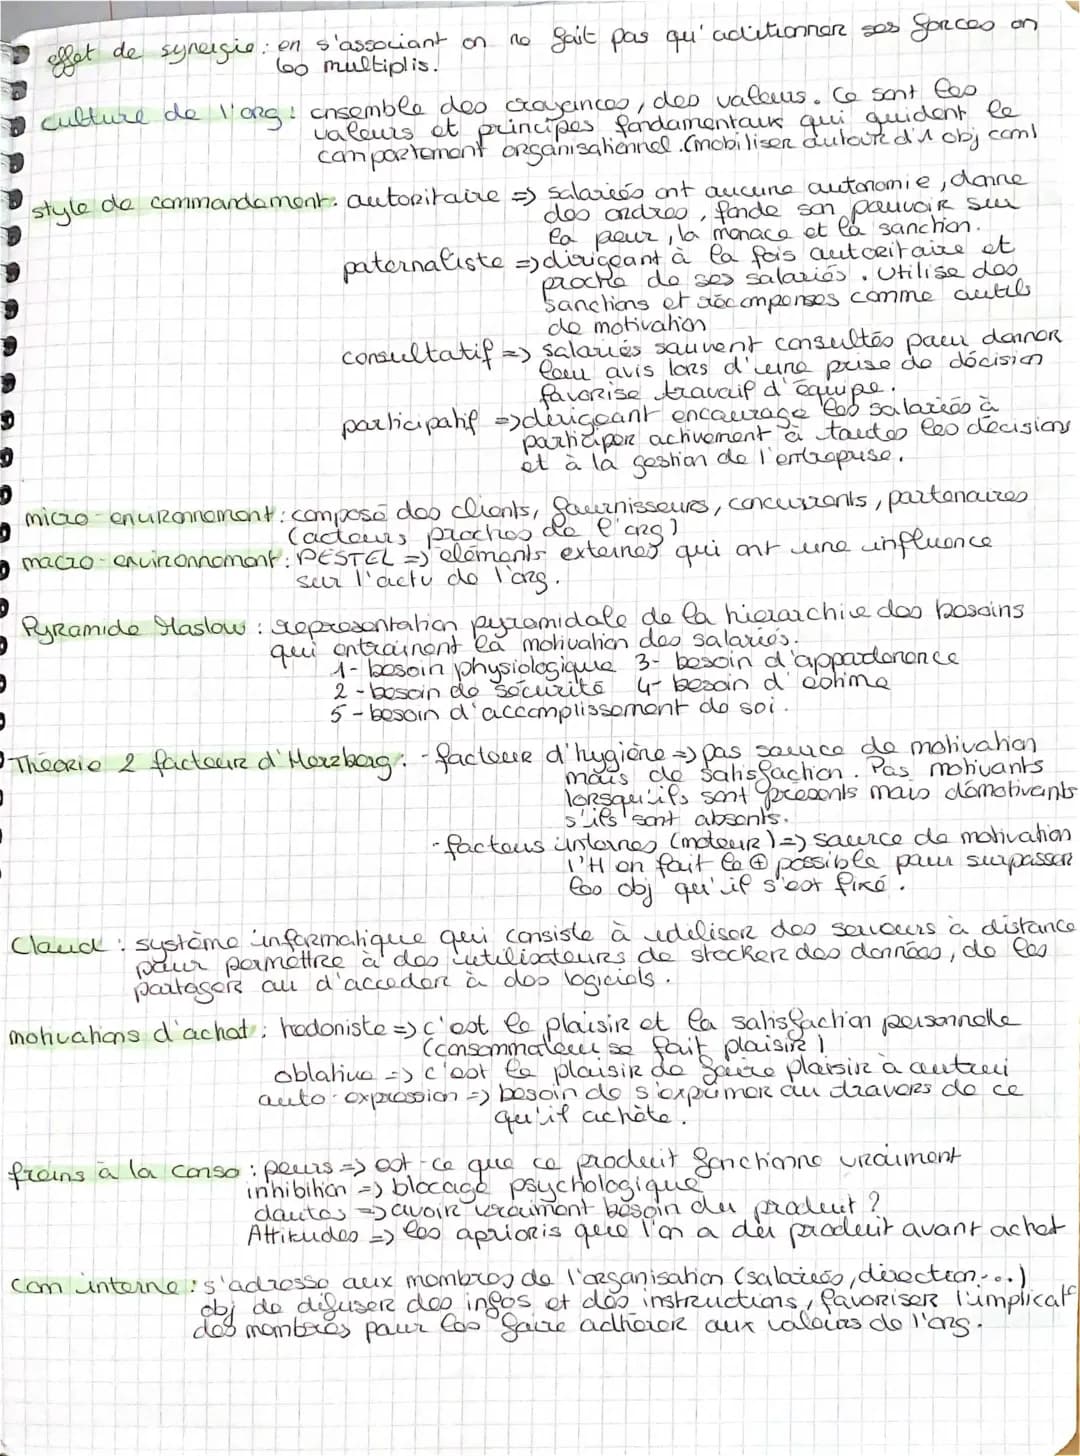 effet de synergie : en s'associant on ne fait pas qu'aditionner ses forces on
les multiplis.
culture de l'org : ensemble des croyances, des valeurs. Ce sont les
valeurs et principes fondamentaux qui guident le
comportement organisationnel. (mobiliser autour d'1 obj com)
style de commandement : autoritaire => salariés ont aucune autonomie, donne
des ordres, fonde son pouvoir sur
la peur, la menace et la sanction.
paternaliste => dirigeant à la fois autoritaire et
proche de ses salariés. Utilise des
sanctions et récompenses comme outils
de motivation
consultatif => salariés souvent consultés pour donner
leur avis lors d'une prise de décision
favorise travail d'équipe.
participatif => dirigeant encourage les salariés à
participer activement à toutes les décisions
et à la gestion de l'entreprise.
micro-environnement : composé des clients, fournisseurs, concurrents, partenaires
(acteurs proches de l'org)
macro-environnement : PESTEL => éléments externes qui ont une influence
sur l'actu de l'org.
Pyramide Maslow : représentation pyramidale de la hierarchie des besoins
qui entrainent la motivation des salariés.
1- besoin physiologique 3- besoin d'appartenence
2- besoin de sécurité 4- besoin d'estime
5- besoin d'accomplissement de soi.
Théorie 2 facteur d'Herzberg : - facteur d'hygiène => pas source de motivation
mais de satisfaction. Pas motivants
lorsqu'ils sont présents mais démotivants
s'ils sont absents.
- facteurs internes (moteur) => source de motivation
l'H en fait le ⊕ possible pour surpasser
les obj qu'il s'est fixé.
Cloud : système informatique qui consiste à utiliser des serveurs à distance
pour permettre à des utilisateurs de stocker des données, de les
partager ou d'acceder à des logiciels.
motivations d'achat : hedoniste => c'est le plaisir et la satisfaction personnelle
(consommateur se fait plaisir)
oblative => c'est le plaisir de faire plaisir à autrui
auto-expression => besoin de s'exprimer au travers de ce
qu'il achète.
freins à la conso : peurs => est-ce que ce produit fonctionne vraiment
inhibition => blocage psychologique
doutes => avoir vraiment besoin du produit ?
Attitudes => les aprioris que l'on a du produit avant achat
com interne : s'adresse aux membres de l'organisation (salariés, direction...)
obj de difuser des infos et des instructions, favoriser l'implicat°
des membres pour les faire adhérer aux valeurs de l'org.